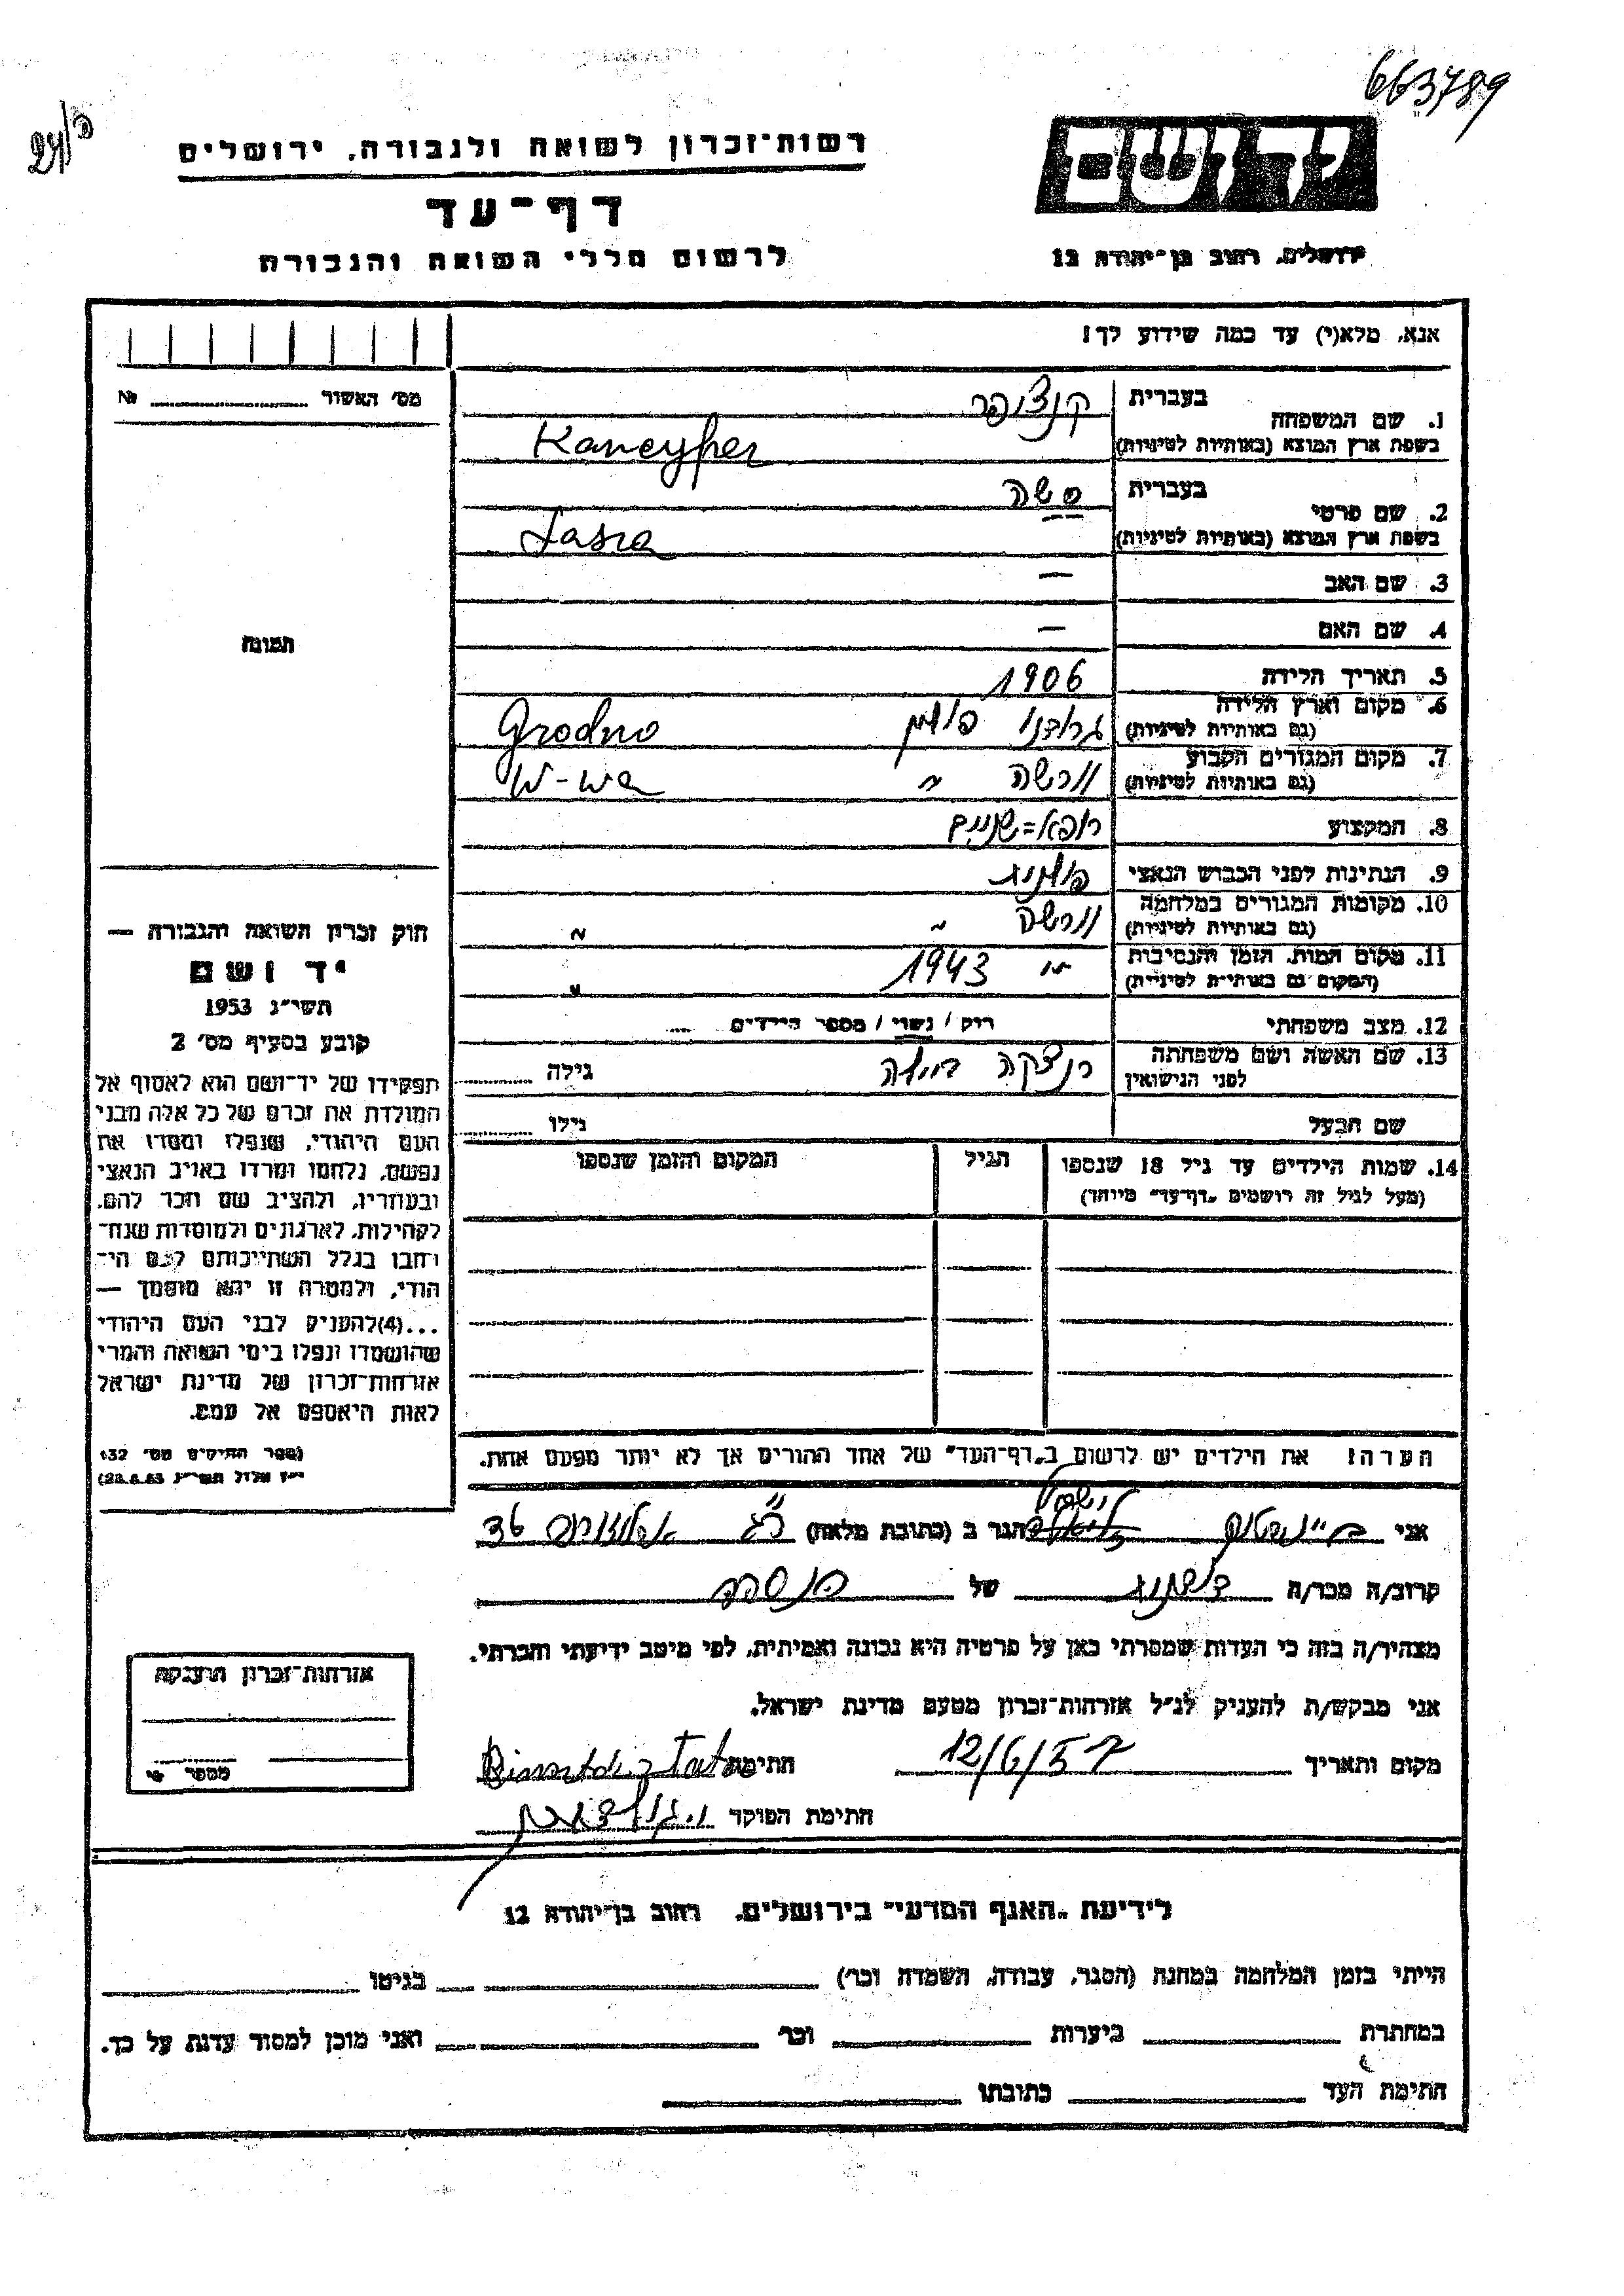 663789
רשות־זכרון לשואה ולגבורה, ירושלים
דף־עד
לרשום חללי השואה והגבורה
יד ושם
ירושלים, רחוב בן־יהודה 12
אנא, מלא(י) עד כמה שידוע לך!
מס׳ האשור № 
1. שם המשפחה
בעברית קנציפר
בשפת ארץ המוצא (באותיות לטיניות) Kancyper
2. שם פרטי
בעברית סשה
בשפת ארץ המוצא (באותיות לטיניות)
3. שם האב —
4. שם האם —
5. תאריך הלידה 1906
6. מקום וארץ הלידה (גם באותיות לטיניות) גרודנו פולין Grodno
7. מקום המגורים הקבוע (גם באותיות לטיניות) וורשה " W-wa
8. המקצוע רופא=שניים
9. הנתינות לפני הכבוש הנאצי פולנית
10. מקומות המגורים במלחמה (גם באותיות לטיניות) וורשה " "
11. מקום המות, הזמן והנסיבות (המקום גם באותיות לטיניות) " 1943 "
12. מצב משפחתי רוק / נשוי / מספר הילדים
13. שם האשה ושם משפחתה לפני הנישואין גילה
שם הבעל גילו
14. שמות הילדים עד גיל 18 שנספו (מעל לגיל זה רושמים "דף־עד" מיוחד)
הגיל
המקום והזמן שנספו
הערה! את הילדים יש לרשום ב"דף־העד" של אחד ההורים אך לא יותר מפעם אחת.
תמונה
חוק זכרון השואה והגבורה —
יד ושם
תשי״ג 1953
קובע בסעיף מס׳ 2
תפקידו של יד־ושם הוא לאסוף אל
המולדת את זכרם של כל אלה מבני
העם היהודי, שנפלו ומסרו את
נפשם, נלחמו ומרדו באויב הנאצי
ובעוזריו, ולהציב שם וזכר להם,
לקהילות, לארגונים ולמוסדות שנח־
רחבו בגלל השתייכותם לעם הי־
הודי, ולמטרה זו יהא מוסמך —
...(4)להעניק לבני העם היהודי
שהושמדו ונפלו בימי השואה והמרי
אזרחות־זכרון של מדינת ישראל
לאות היאספם אל עמם.
(ספר החוקים מס׳ 132
י״ז אלול תשי״ג 28.8.53)
אני הגר ב (כתובת מלאה)
קרוב/ה מכר/ה של
מצהיר/ה בזה כי העדות שמסרתי כאן על פרטיה היא נכונה ואמיתית, לפי מיטב ידיעתי והכרתי.
אני מבקש/ת להעניק לנ״ל אזרחות־זכרון מטעם מדינת ישראל.
מקום ותאריך 12/6/57 חתימת
חתימת הפוקד
אזרחות־זכרון הוענקה
מספר
לידיעת "האגף המדעי" בירושלים, רחוב בן־יהודה 12
הייתי בזמן המלחמה במחנה (הסגר, עבודה, השמדה וכו׳) בגיטו
במחתרת ביערות וכו׳ ואני מוכן למסור עדות על כך.
חתימת העד כתובתו